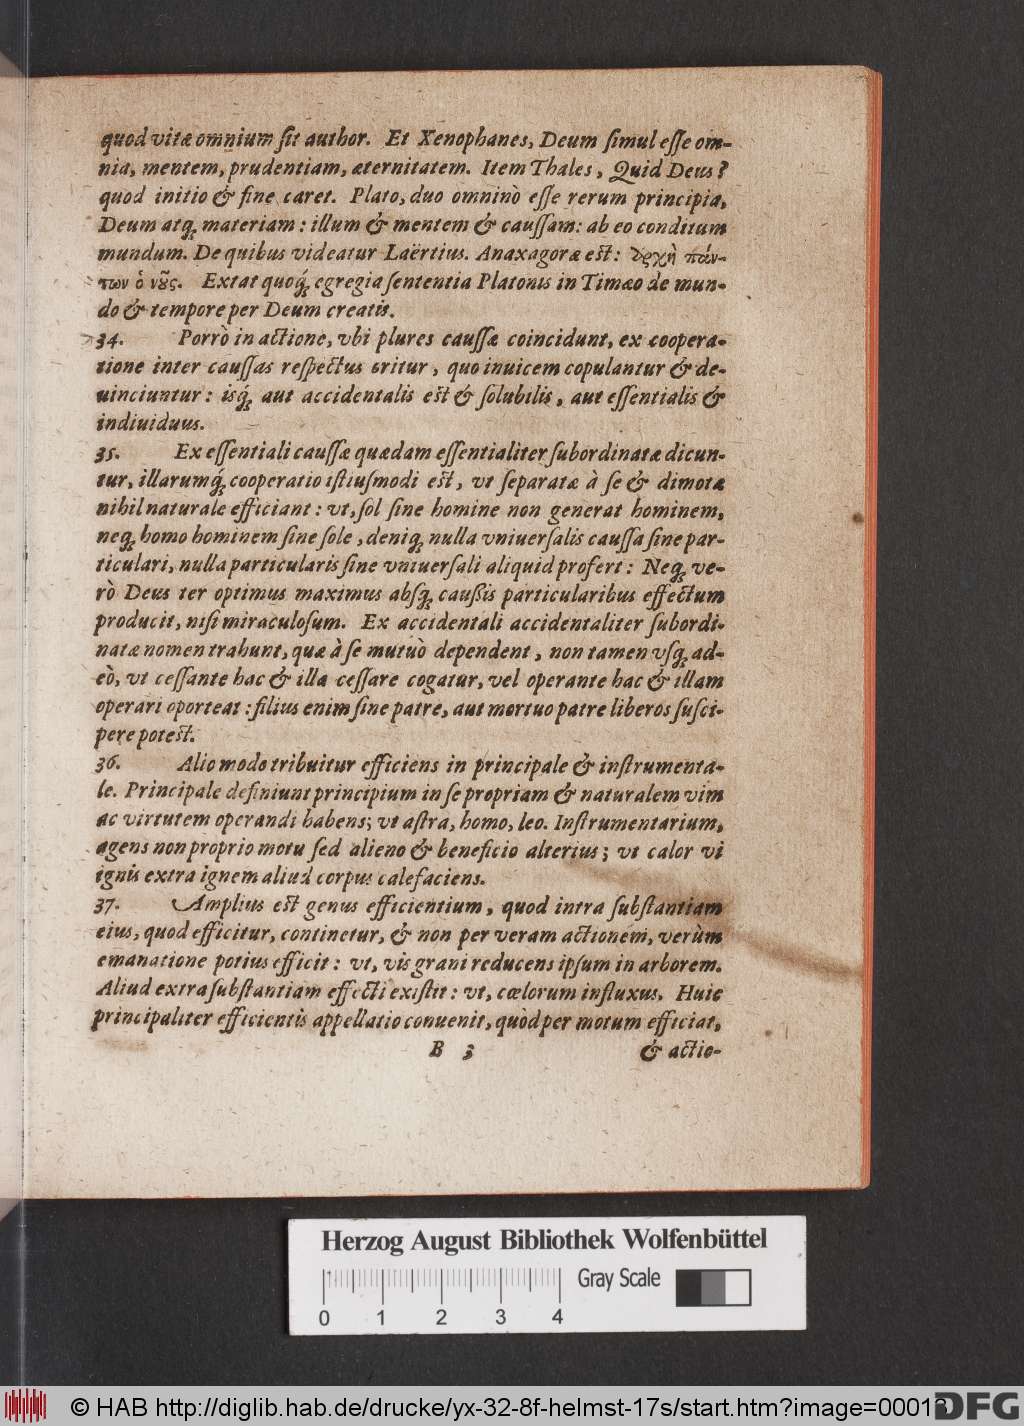 quod vitæ omnium ſit author. Et Xenophanes, Deum ſimul eſſe om-
nia, mentem, prudentiam, æternitatem. Item Thales, Quid Deus?
quod initio & fine caret. Plato, duo omninò eſſe rerum principia,
Deum atq; materiam: illum & mentem & cauſſam: ab eo conditum
mundum. De quibus videatur Laërtius. Anaxagoræ est: ἀρχὴ πάν-
των ὁ νοῦς. Extat quoq; egregia ſententia Platonis in Timæo de mun-
do & tempore per Deum creatis.
34. Porrò in actione, vbi plures cauſſæ coincidunt, ex coopera-
tione inter cauſſas reſpectus oritur, quo inuicem copulantur & de-
uinciuntur: isq́; aut accidentalis est & ſolubilis, aut eſſentialis &
indiuiduus.
35. Ex eſſentiali cauſſæ quædam eſſentialiter ſubordinatæ dicun-
tur, illarumq́; cooperatio iſtiuſmodi est, vt ſeparatæ à ſe & dimotæ
nihil naturale efficiant: vt, ſol ſine homine non generat hominem,
neq; homo hominem ſine ſole, deniq; nulla vniuerſalis cauſſa ſine par-
ticulari, nulla particularis ſine vniuerſali aliquid profert: Neq; ve-
rò Deus ter optimus maximus abſq; cauſsis particularibus effectum
producit, niſi miraculoſum. Ex accidentali accidentaliter ſubordi-
natæ nomen trahunt, quæ à ſe mutuò dependent, non tamen vſq; ad-
eò, vt ceſſante hac & illa ceſſare cogatur, vel operante hac & illam
operari oporteat: filius enim ſine patre, aut mortuo patre liberos ſuſci-
pere potest.
36. Alio modo tribuitur efficiens in principale & inſtrumenta-
le. Principale definiunt principium in ſe propriam & naturalem vim
ac virtutem operandi habens; vt aſtra, homo, leo. Inſtrumentarium,
agens non proprio motu ſed alieno & beneficio alterius; vt calor vi
ignis extra ignem aliud corpus calefaciens.
37. Amplius est genus efficientium, quod intra ſubſtantiam
eius, quod efficitur, continetur, & non per veram actionem, verùm
emanatione potius efficit: vt, vis grani reducens ipſum in arborem.
Aliud extra ſubſtantiam effecti exiſtit: vt, cœlorum influxus. Huic
principaliter efficientis appellatio conuenit, quòd per motum efficiat,
B 3 & actio-
Herzog August Bibliothek Wolfenbüttel
Gray Scale
0 1 2 3 4
© HAB http://diglib.hab.de/drucke/yx-32-8f-helmst-17s/start.htm?image=00013
DFG